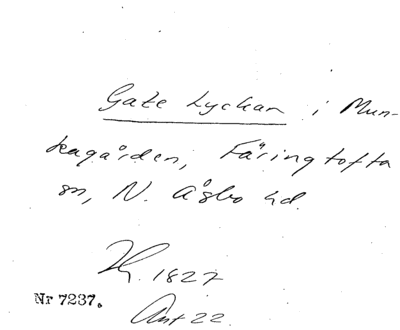 Gate Lyckan i Mun-
kagården, Färingtofta
sn, N. Åsbo hd.
1827
Nr 7237.
Ant 22